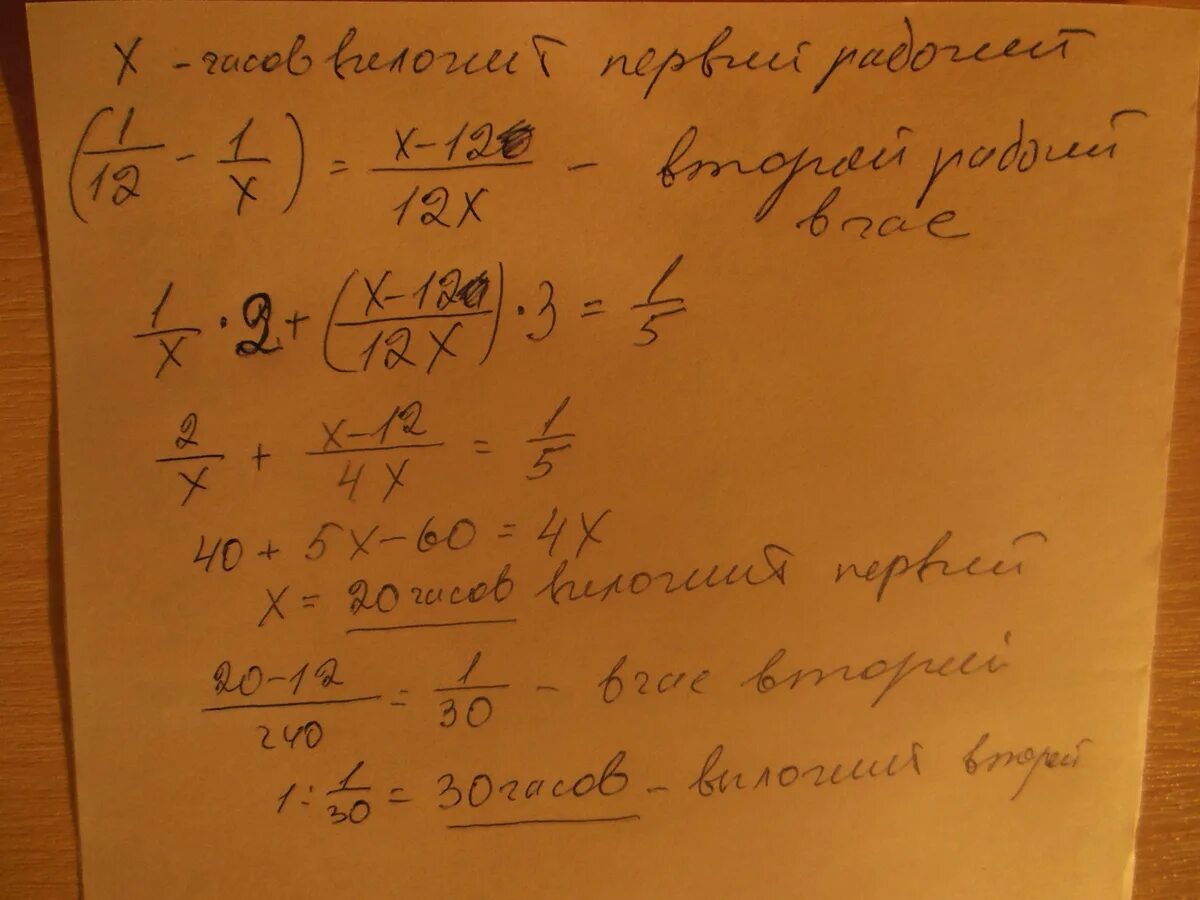 x - часов выложит первый рабочий
(1/12 - 1/x) = (x-12)/12x - второй рабочий
в час
1/x · 2 + ((x-12)/12x) · 3 = 1/5
2/x + (x-12)/4x = 1/5
40 + 5x - 60 = 4x
x = 20 часов выложит первый
(20-12)/240 = 1/30 - в час второй
1 : 1/30 = 30 часов - выложит второй